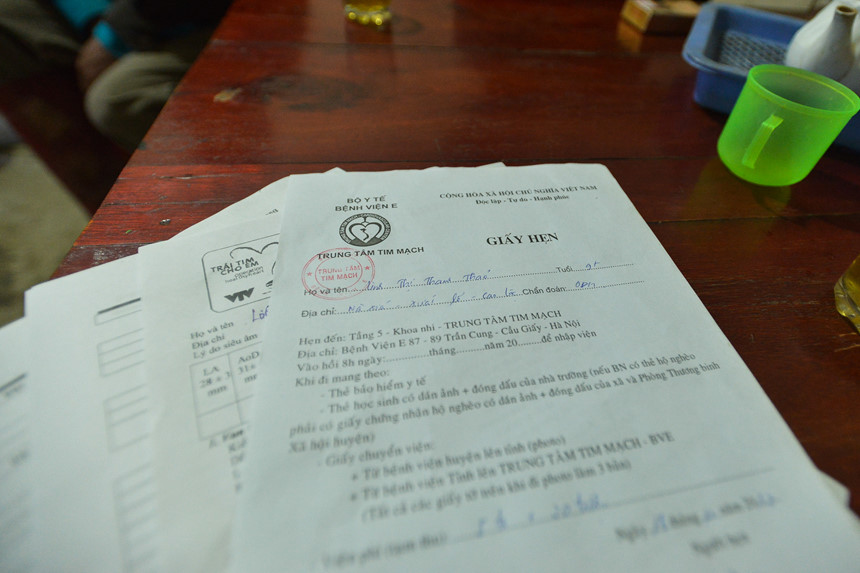 BỘ Y TẾ
BỆNH VIỆN E
TRUNG TÂM TIM MẠCH
CỘNG HÒA XÃ HỘI CHỦ NGHĨA VIỆT NAM
Độc lập - Tự do - Hạnh phúc
GIẤY HẸN
TRUNG TÂM
TIM MẠCH
Họ và tên Thị Thanh Tuổi
Địa chỉ: Chẩn đoán:
Hẹn đến: Tầng 5 - Khoa nhi - TRUNG TÂM TIM MẠCH
Địa chỉ: Bệnh Viện E 87 - 89 Trần Cung - Cầu Giấy - Hà Nội
Vào hồi 8h ngày:...............tháng.........năm 20.......để nhập viện
Khi đi mang theo:
- Thẻ bảo hiểm y tế
- Thẻ học sinh có dán ảnh + đóng dấu của nhà trường (nếu BN có thẻ hộ nghèo
phải có giấy chứng nhân hộ nghèo có dán ảnh + đóng dấu của xã và Phòng Thương binh
Xã hội huyện)
- Giấy chuyển viện:
+ Từ bệnh viện huyện lên tỉnh (photo)
+ Từ bệnh viện Tỉnh lên TRUNG TÂM TIM MẠCH - BVE
(Tất cả các giấy tờ trên khi đi photo làm 3 bản)
Ngày tháng năm
TRÁI TIM
CHO EM
VTV
Họ và tên
Địa chỉ
Lý do siêu âm
LA
28
mm
AoD
mm